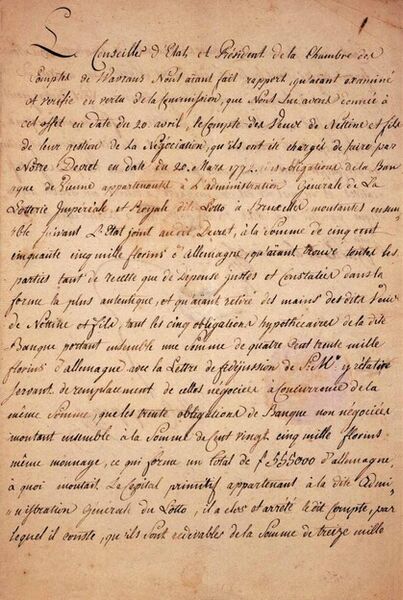 Le Conseiller d'Etat et Président de la Chambre des
Comptes de Warzans Nous aiant fait rapport, qu'aiant examiné
et verifié en vertu de la Commission, que Nous Luc avons donnée à
cet effet en date du 20. avril, le Compte des Veuve de Nettine et fils
de leur gestion de la Négociation, qu'ils ont été chargés de faire par
Nôtre Decret en date du 28. Mars 177 obligations de la Ban
que de Vienne appartenants à L'administration Generale de La
Lotterie Impériale et Royale dit Lotto à Bruxelles montantes ensem
ble suivant L'Etat joint au dit Decret, à la somme de cinq cent
cinquante cinq mille florins d'allemagne, qu'aiant trouvé toutes les
parties tant de recette que de dépense justes et Constatées dans la
forme la plus autentique, et qu'aiant retiré des mains des dits Veuve
de Nettine et fils, tant les cinq obligations hypothecaires de la dite
Banque portant ensemble une somme de quatre cent trente mille
florins d'allemagne avec la Lettre de fidejussion de S: M: y rélative
servant de remplacement de celles negociées à Concurrence de la
même Somme, que les trente obligations de Banque non negociées
montant ensemble à la Somme de Cent vingt cinq mille florins
même monnaye, ce qui forme un total de f 555000 d'allemagne,
à quoi montait Le Capital primitif appartenant à la dite Admi-
"nistration Generale du Lotto, il a clos et arrêté le dit Compte, par
lequel il conste, qu'ils sont redevables de la Somme de treize mille